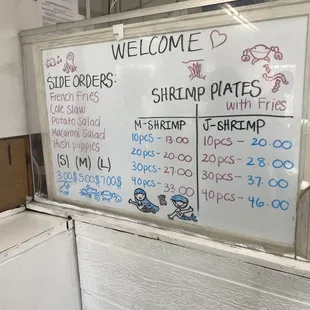 WELCOME
SIDE ORDERS:
French Fries
Cole Slaw
Potato Salad
Macaroni Salad
Hush puppies
(S) (M) (L)
3.00$ 5.00$ 7.00$
SHRIMP PLATES
with Fries
M-SHRIMP
10pcs - 13.00
20pcs - 20.00
30pcs - 27.00
40pcs - 33.00
J-SHRIMP
10pcs - 20.00
20pcs - 28.00
30pcs - 37.00
40pcs - 46.00